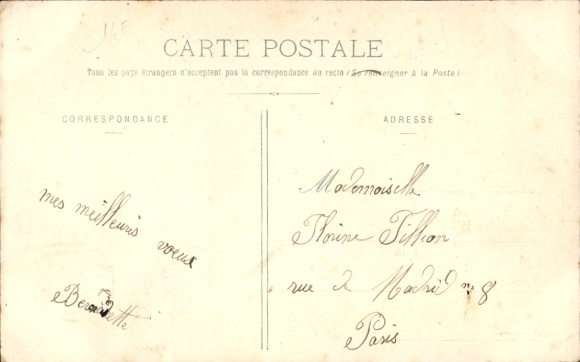 CARTE POSTALE
Tous les pays étrangers n'acceptent pas la correspondance au recto (Se renseigner à la Poste)
CORRESPONDANCE
ADRESSE
mes meilleurs voeux
Bernadette
Mademoiselle
Florine Tillion
rue de Madrid n° 8
Paris